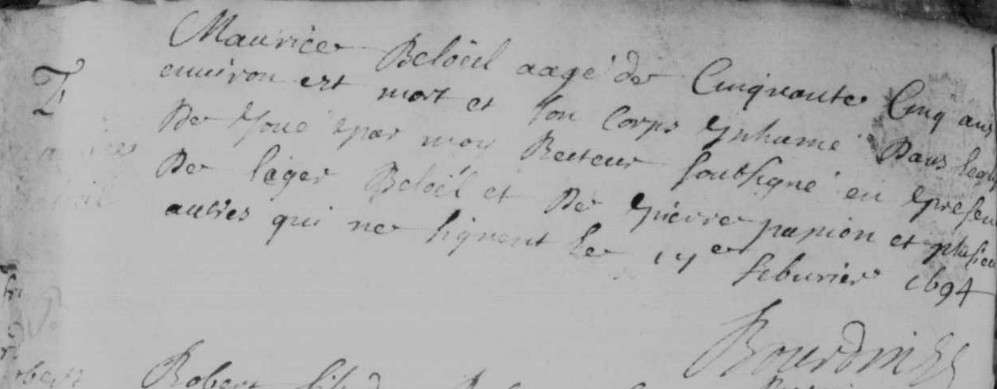 Maurice Beloeil aagé de Cinquante Cinq ans
environ est mort et son corps ynhumé dans leglise
De par moy Recteur soubsigné en presen
De leger Beloeil et De pierre papion et plusieu
autres qui ne signent le febvrier 1694
Bourdin
Robert